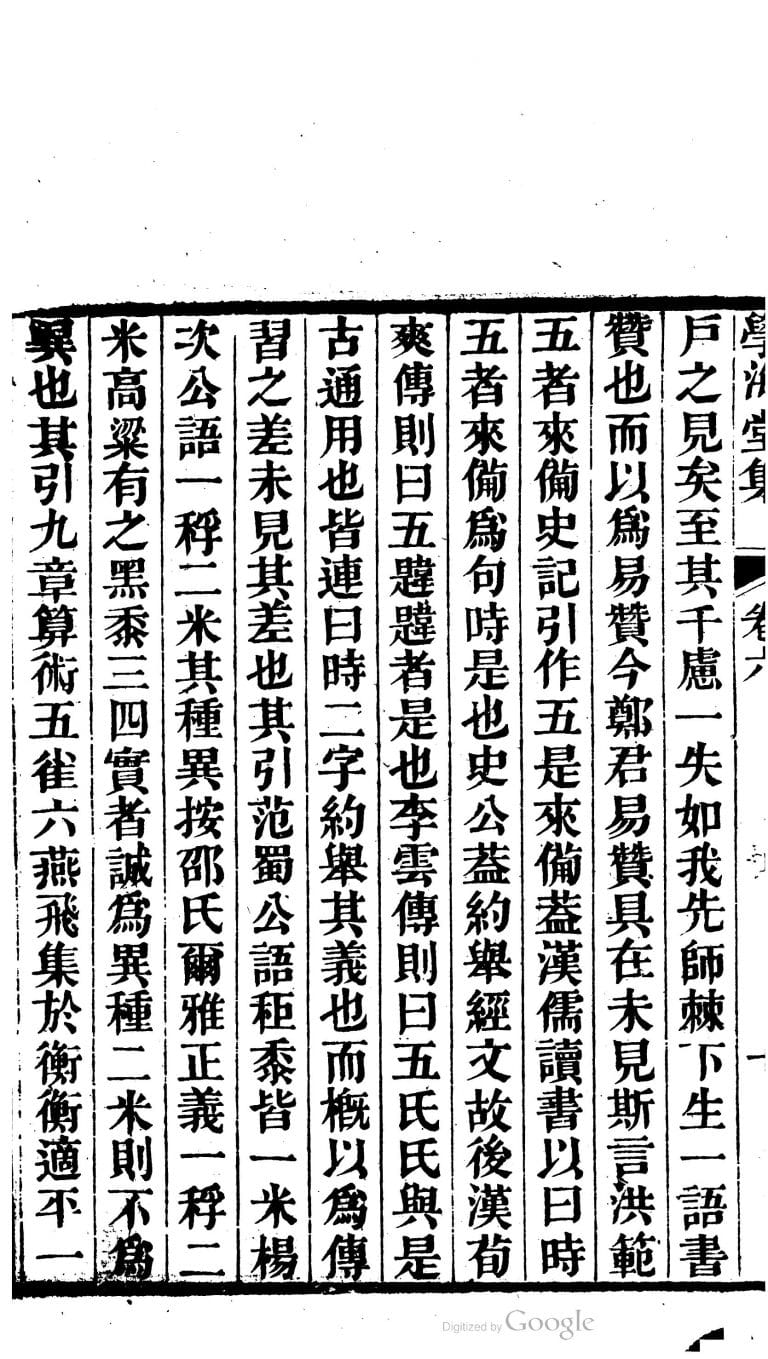 學海堂集 卷六
戶之見矣至其千慮一失如我先師棘下生一語書
贊也而以爲易贊今鄭君易贊具在未見斯言洪範
五者來備史記引作五是來備葢漢儒讀書以曰時
五者來備爲句時是也史公葢約舉經文故後漢荀
爽傳則曰五韙韙者是也李雲傳則曰五氏氏與是
古通用也皆連曰時二字約舉其義也而槪以爲傳
習之差未見其差也其引范蜀公語秬黍皆一米楊
次公語一稃二米其種異按邵氏爾雅正義一稃二
米高粱有之黑黍三四實者誠爲異種二米則不爲
異也其引九章算術五雀六燕飛集於衡衡適平一
Digitized by Google